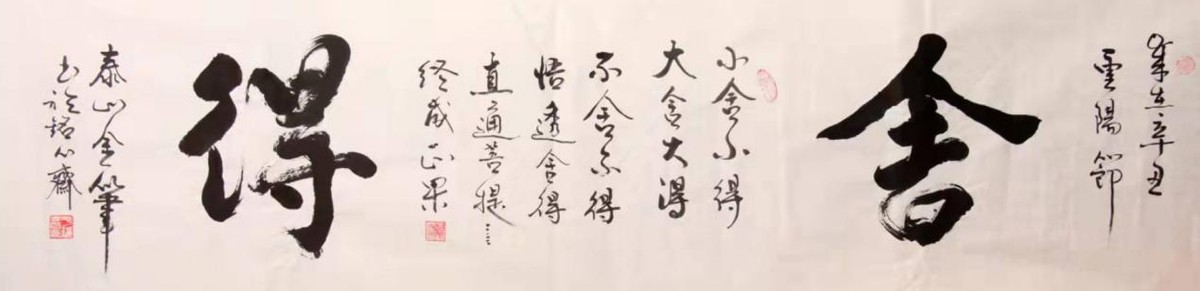 岁在辛丑
重陽節
舍
小舍小得
大舍大得
不舍不得
悟透舍得
直通菩提……
终成正果
得
泰山金筆
书於铭心齋